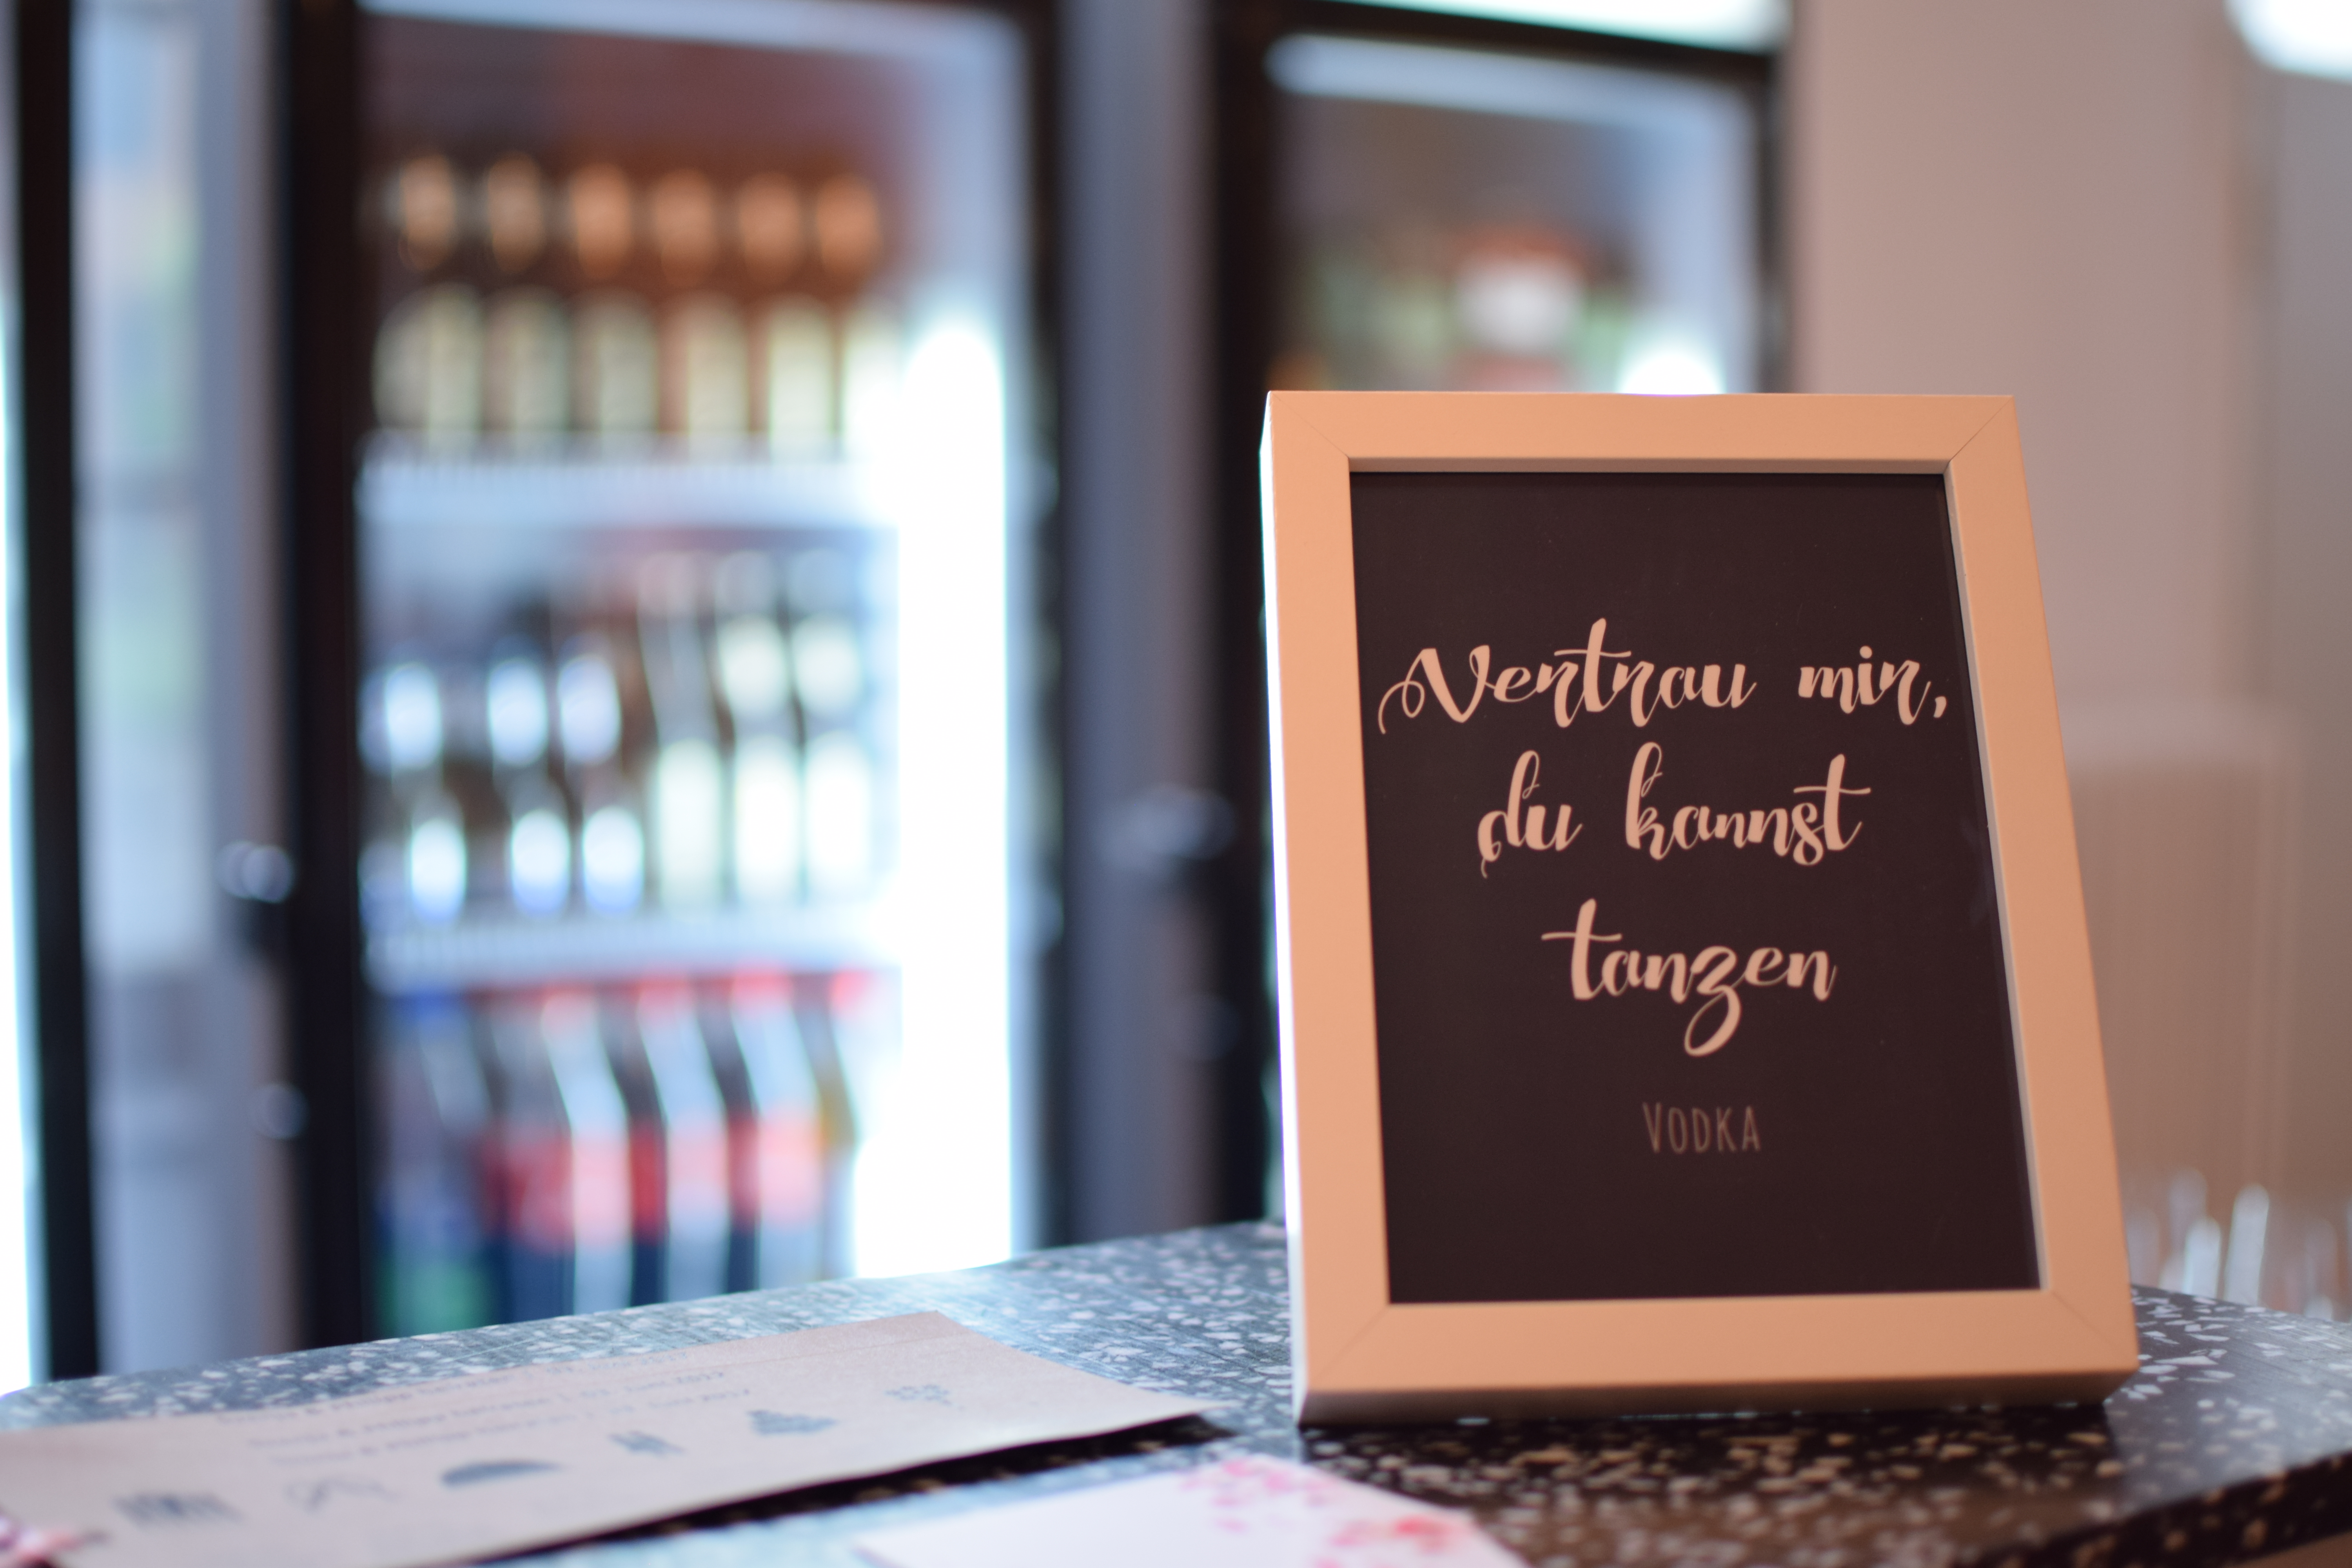 Vertrau mir,
du kannst
tanzen
VODKA